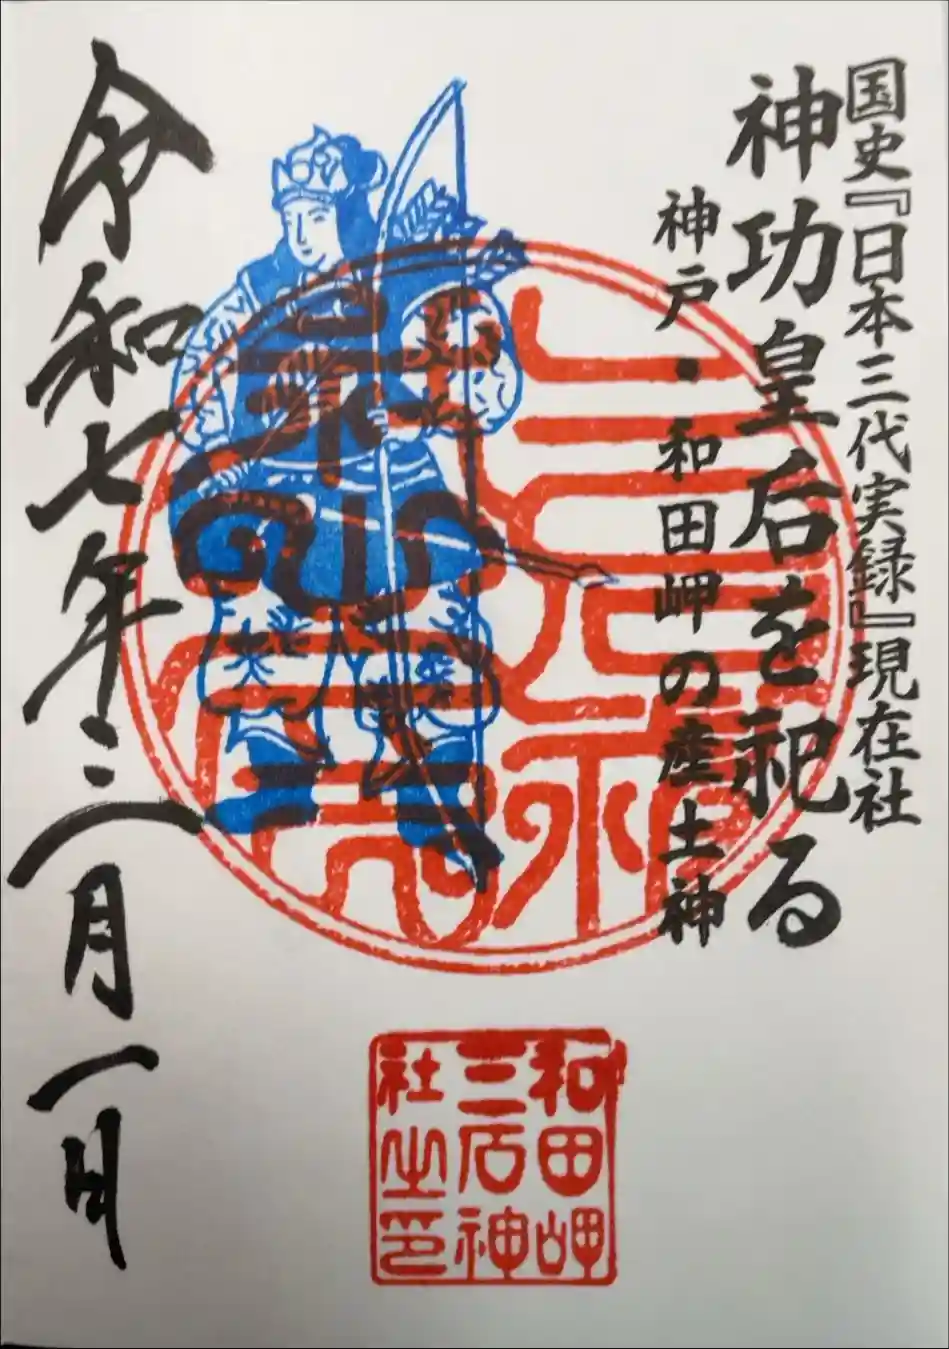 国史『日本三代実録』現在社
神功皇后を祀る
神戸・和田岬の産土神
令和七年三月一日
和田岬
三石神
社之印